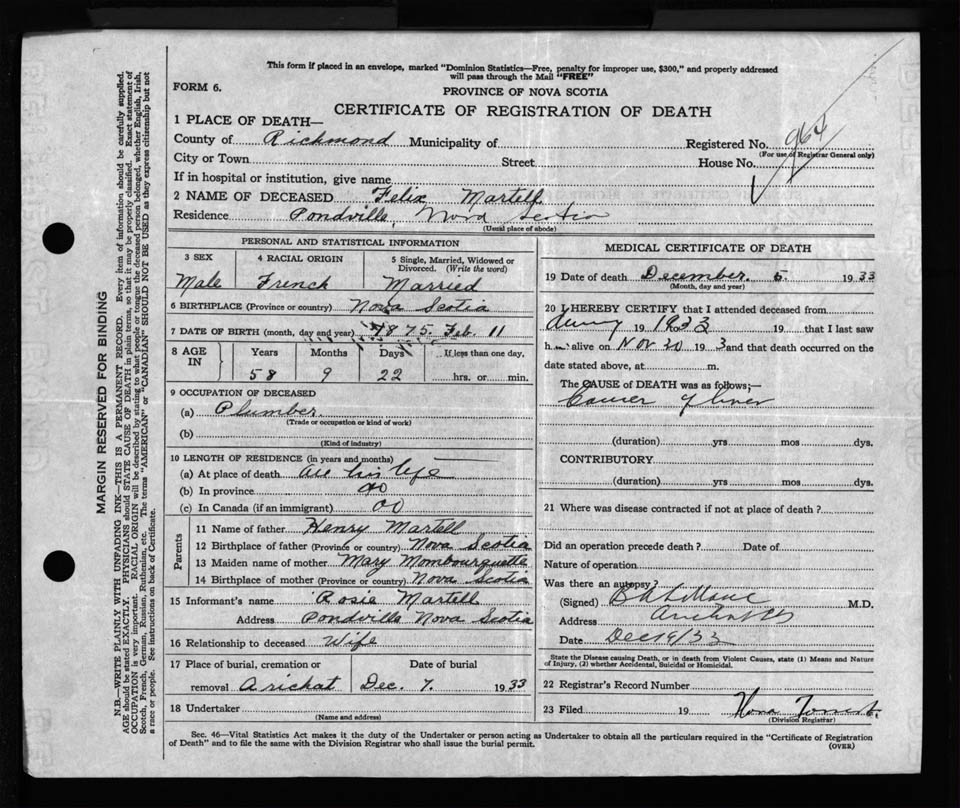 This form if placed in an envelope, marked "Dominion Statistics—Free, penalty for improper use, $300," and properly addressed
will pass through the Mail "FREE"
FORM 6.
PROVINCE OF NOVA SCOTIA
CERTIFICATE OF REGISTRATION OF DEATH
1 PLACE OF DEATH—
County of Richmond Municipality of Registered No. 964
(For use of Registrar General only)
City or Town Street House No.
If in hospital or institution, give name
2 NAME OF DECEASED Felix Martell
Residence Pondville, Nova Scotia
(Usual place of abode)
PERSONAL AND STATISTICAL INFORMATION
3 SEX 4 RACIAL ORIGIN 5 Single, Married, Widowed or
Divorced. (Write the word)
Male French Married
6 BIRTHPLACE (Province or country) Nova Scotia
7 DATE OF BIRTH (month, day and year) 1875. Feb. 11
8 AGE IN Years Months Days If less than one day.
58 9 22 hrs. or min.
9 OCCUPATION OF DECEASED
(a) Plumber
(Trade or occupation or kind of work)
(b)
(Kind of industry)
10 LENGTH OF RESIDENCE (in years and months)
(a) At place of death all his life
(b) In province do
(c) In Canada (if an immigrant) do
Parents
11 Name of father Henry Martell
12 Birthplace of father (Province or country) Nova Scotia
13 Maiden name of mother Mary Mombourquette
14 Birthplace of mother (Province or country) Nova Scotia
15 Informant's name Rosie Martell
Address Pondville Nova Scotia
16 Relationship to deceased Wife
17 Place of burial, cremation or Date of burial
removal Arichat Dec. 7. 1933
18 Undertaker
(Name and address)
MEDICAL CERTIFICATE OF DEATH
19 Date of death December. 5 1933
(Month, day and year)
20 I HEREBY CERTIFY that I attended deceased from
19 to 1933 19 that I last saw
h alive on Nov 20 19 3 and that death occurred on the
date stated above, at m.
The CAUSE of DEATH was as follows;—
Cancer of liver
(duration) yrs mos dys.
CONTRIBUTORY
(duration) yrs mos dys.
21 Where was disease contracted if not at place of death?
Did an operation precede death? Date of
Nature of operation
Was there an autopsy?
(Signed) M.D.
Address Arichat
Date Dec 19/33
State the Disease causing Death, or in death from Violent Causes, state (1) Means and Nature
of Injury, (2) whether Accidental, Suicidal or Homicidal.
22 Registrar's Record Number
23 Filed 19
(Division Registrar)
Sec. 46—Vital Statistics Act makes it the duty of the Undertaker or person acting as Undertaker to obtain all the particulars required in the "Certificate of Registration
of Death" and to file the same with the Division Registrar who shall issue the burial permit. (OVER)
MARGIN RESERVED FOR BINDING
N.B.—WRITE PLAINLY WITH UNFADING INK—THIS IS A PERMANENT RECORD. Every item of information should be carefully supplied.
AGE should be stated EXACTLY. PHYSICIANS should STATE CAUSE OF DEATH in plain terms, so that it may be properly classified. Exact statement of
OCCUPATION is very important. RACIAL ORIGIN will be described by stating to what people or tongue the deceased person belonged, whether English, Irish,
Scotch, French, German, Russian, Ruthenian, etc. The terms "AMERICAN" or "CANADIAN" SHOULD NOT BE USED as they express citizenship but not
a race or people. See instructions on back of Certificate.